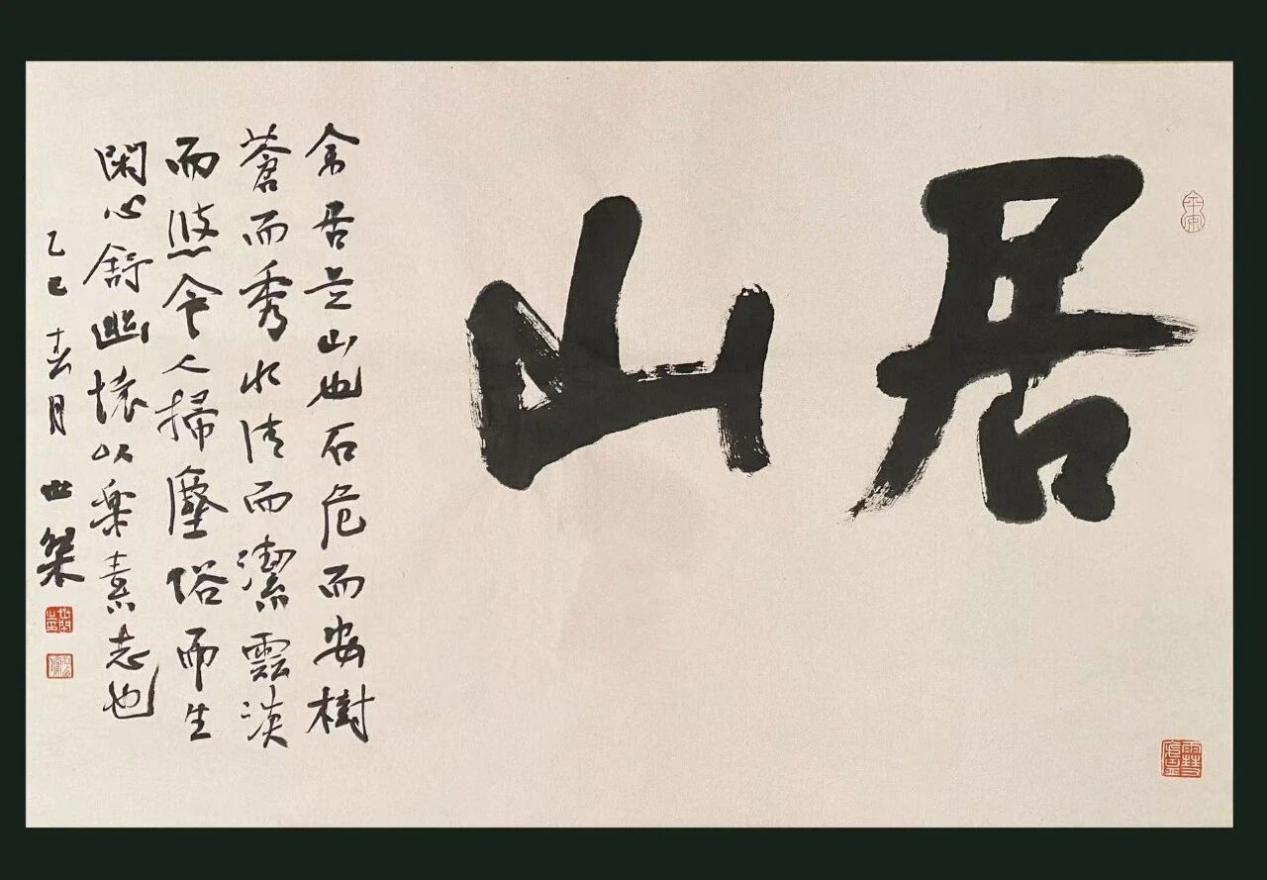 居山
余居是山也石危而安樹
蒼而秀水清而潔雲淡
而悠令人掃塵俗而生
閑心舒幽懷以楽素志也
乙巳春月 世桀